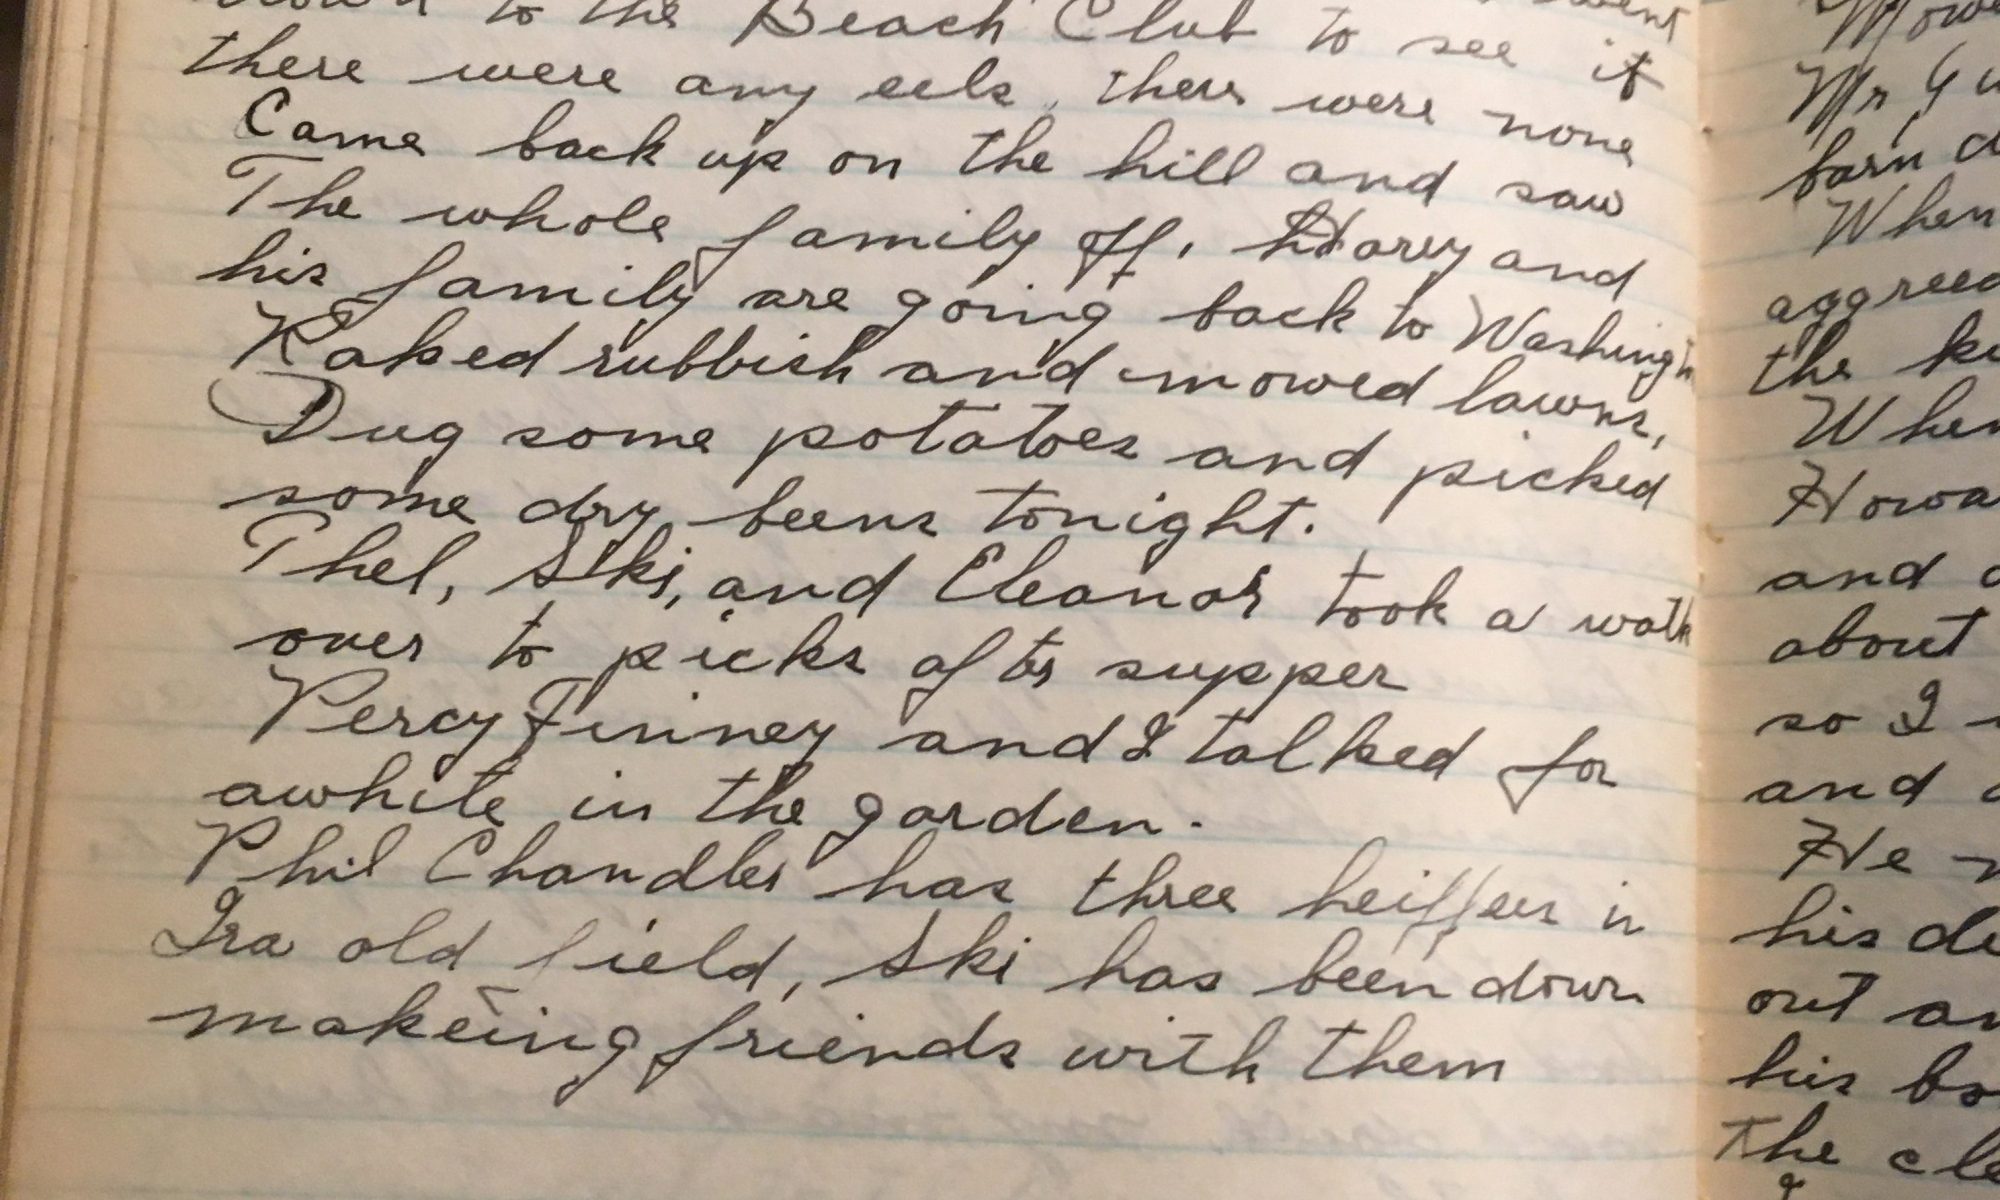 down to the Beach Club to see if
there were any eels, there were none
Came back up on the hill and saw
The whole family off, Harry and
his family are going back to Washington
Raked rubbish and mowed lawns,
Dug some potatoes and picked
some dry beens tonight.
Thel, Ski, and Eleanor took a walk
over to picks after supper
Percy Finney and I talked for
awhile in the garden.
Phil Chandler has three heiffers in
Ira old field, Ski has been down
makeing friends with them
Mr
barn
When
aggreed
the
When
and
about
so I
and
He
his
out
his
the